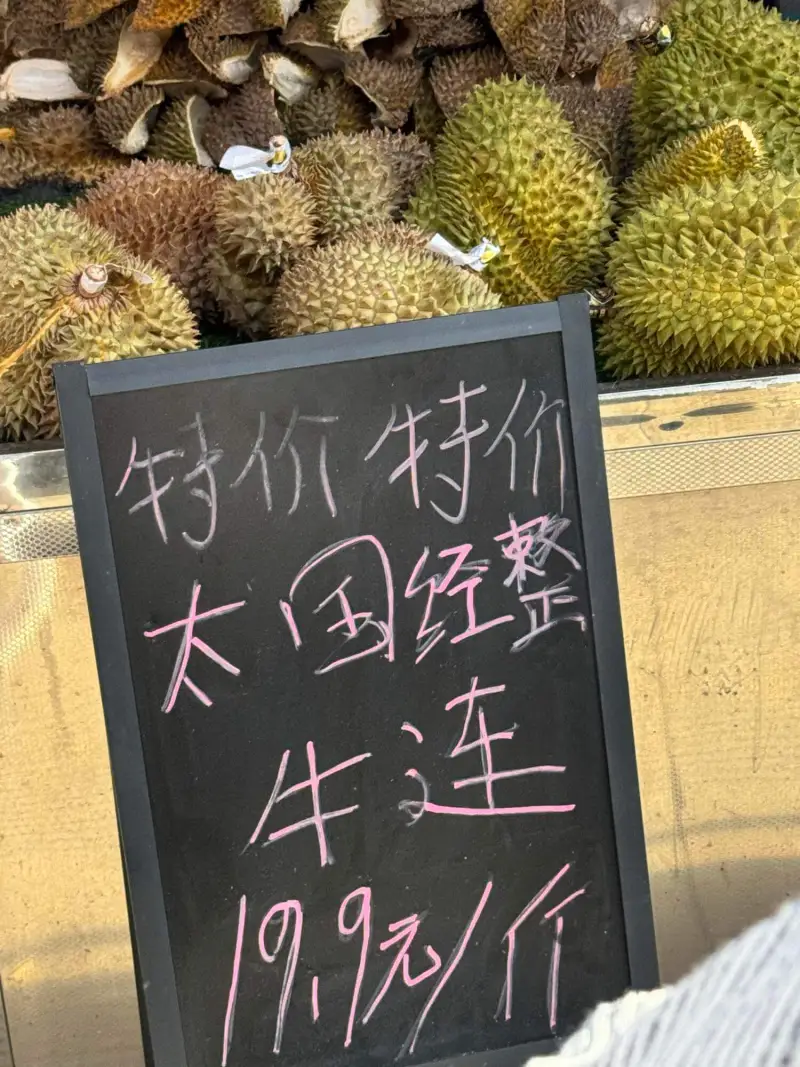 特价 特价
太国经整
牛连
19.9元/斤